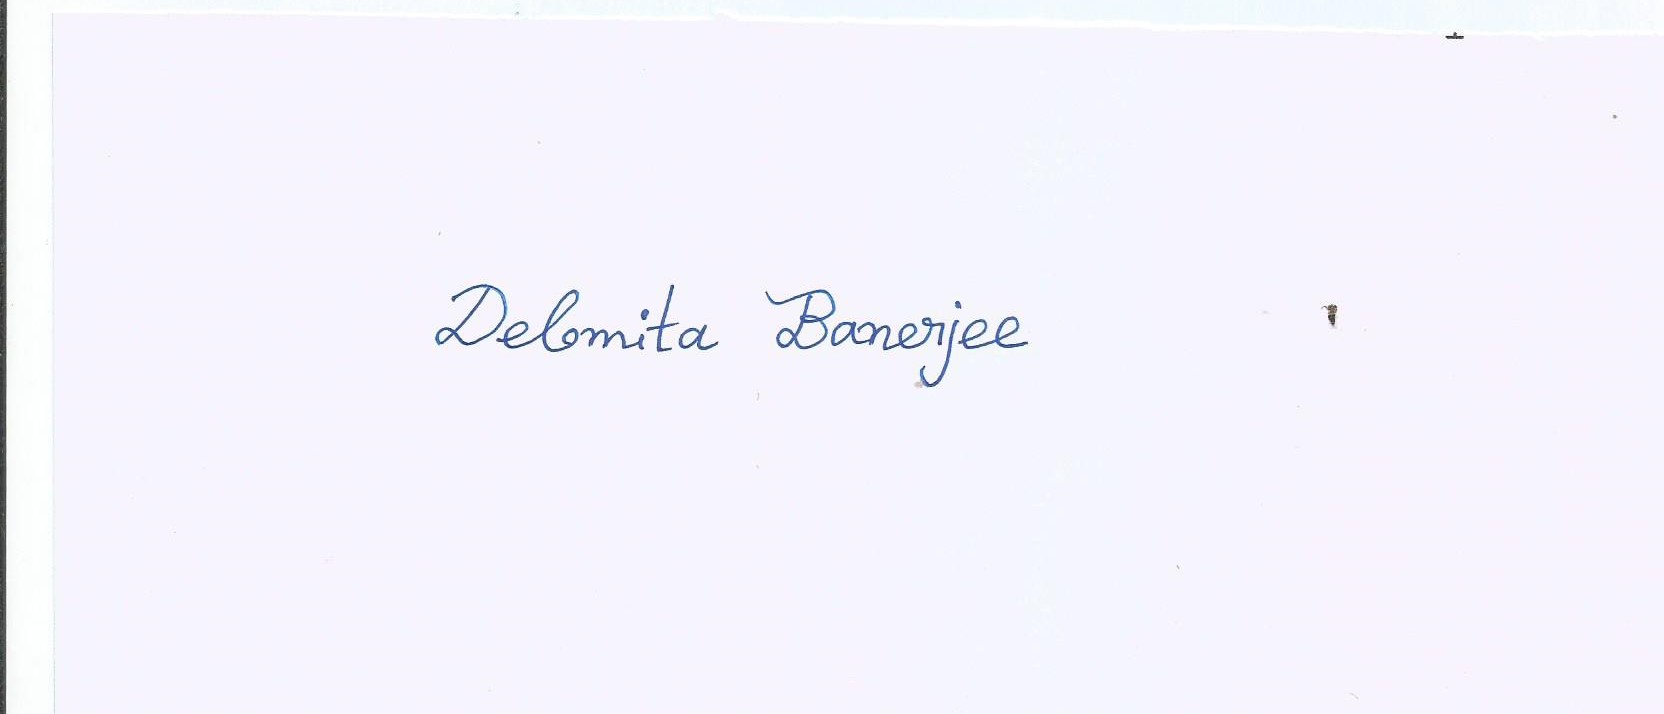 Debomita Banerjee